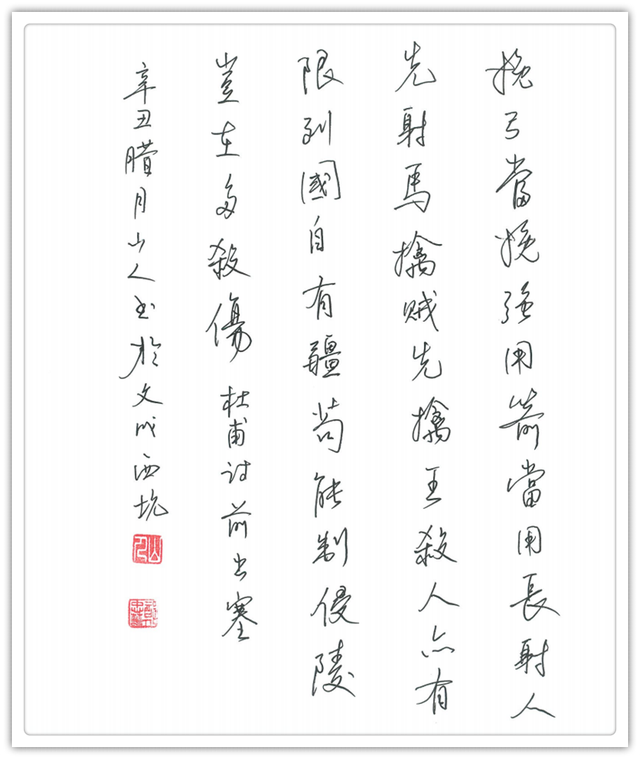 挽弓當挽强用箭當用長射人
先射馬擒賊先擒王殺人亦有
限列國自有疆苟能制侵陵
豈在多殺傷 杜甫诗前出塞
辛丑腊月山人书於文成西坑
山人